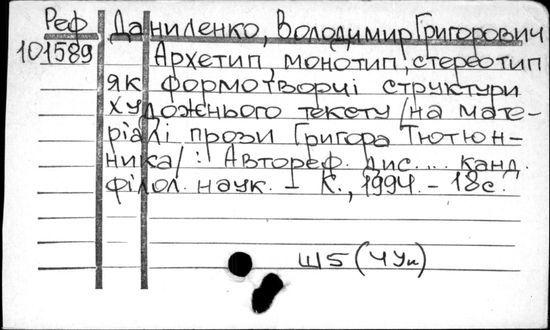 Реф Даниленко, Володимир Григорович
101589 Архетип, монотип, стереотип
як формотворчі структури
художнього тексту /на мате-
ріалі прози Григора Тютюн-
ника/ : Автореф. дис. ... канд.
філол. наук. - К., 1994. - 18с.
Ш5(4Ук)